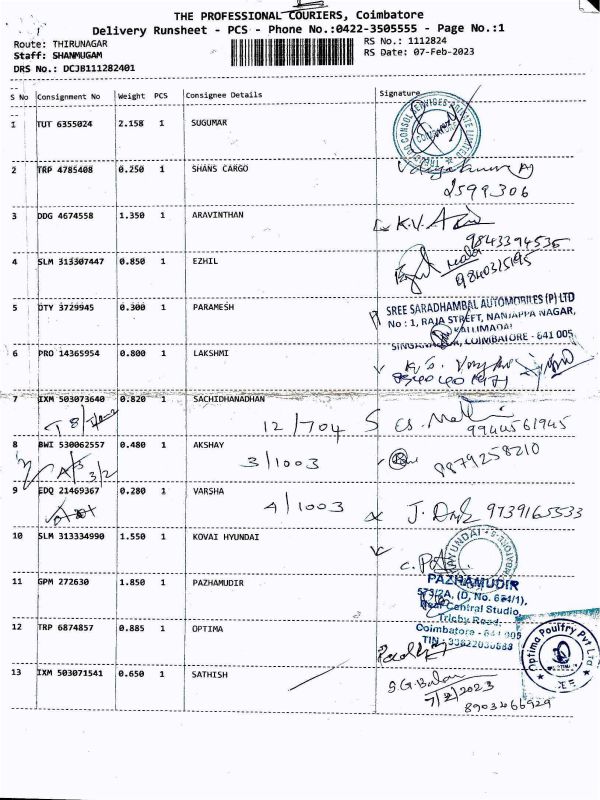 THE PROFESSIONAL COURIERS, Coimbatore
Delivery Runsheet - PCS - Phone No.:0422-3505555 - Page No.:1
Route: THIRUNAGAR
RS No.: 1112824
Staff: SHANMUGAM
RS Date: 07-Feb-2023
DRS No.: DCJB111282401
S No Consignment No Weight PCS Consignee Details Signature
1 TUT 6355024 2.158 1 SUGUMAR
2 TRP 4785408 0.250 1 SHANS CARGO
2599306
3 DDG 4674558 1.350 1 ARAVINTHAN
K.V.
9843394536
4 SLM 313307447 0.850 1 EZHIL
9840315195
5 DTY 3729945 0.300 1 PARAMESH
SREE SARADHAMBAL AUTOMOBILES (P) LTD
No : 1, RAJA STREET, NANJAPPA NAGAR,
COIMBATORE - 641 005
6 PRO 14365954 0.800 1 LAKSHMI
7 IXM 503073640 0.820 1 SACHIDHANADHAN
12/704
9944561945
8 BWI 530062557 0.480 1 AKSHAY
3/1003
8879258210
A/3 3/2
9 EDQ 21469367 0.280 1 VARSHA
4/1003
J. 9739165533
10 SLM 313334990 1.550 1 KOVAI HYUNDAI
11 GPM 272630 1.850 1 PAZHAMUDIR
PAZHAMUDIR
573/2A, (D, No. 684/1),
Near Central Studio,
Trichy Road,
12 TRP 6874857 0.885 1 OPTIMA
Coimbatore - 641 005
Optima Poultry Pvt Ltd
13 IXM 503071541 0.650 1 SATHISH
S.G. Balan
7/2/2023
8903266929